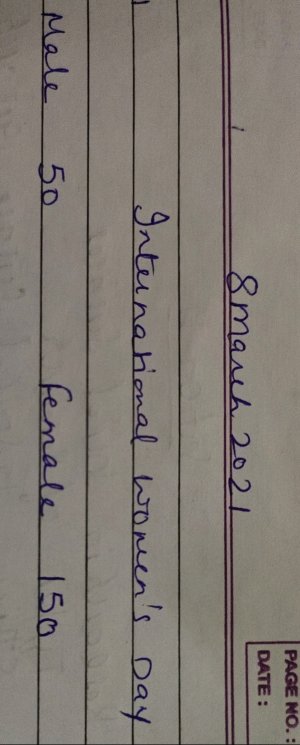 PAGE NO. :
DATE :
8 march 2021
International Women's Day
Male 50 Female 150